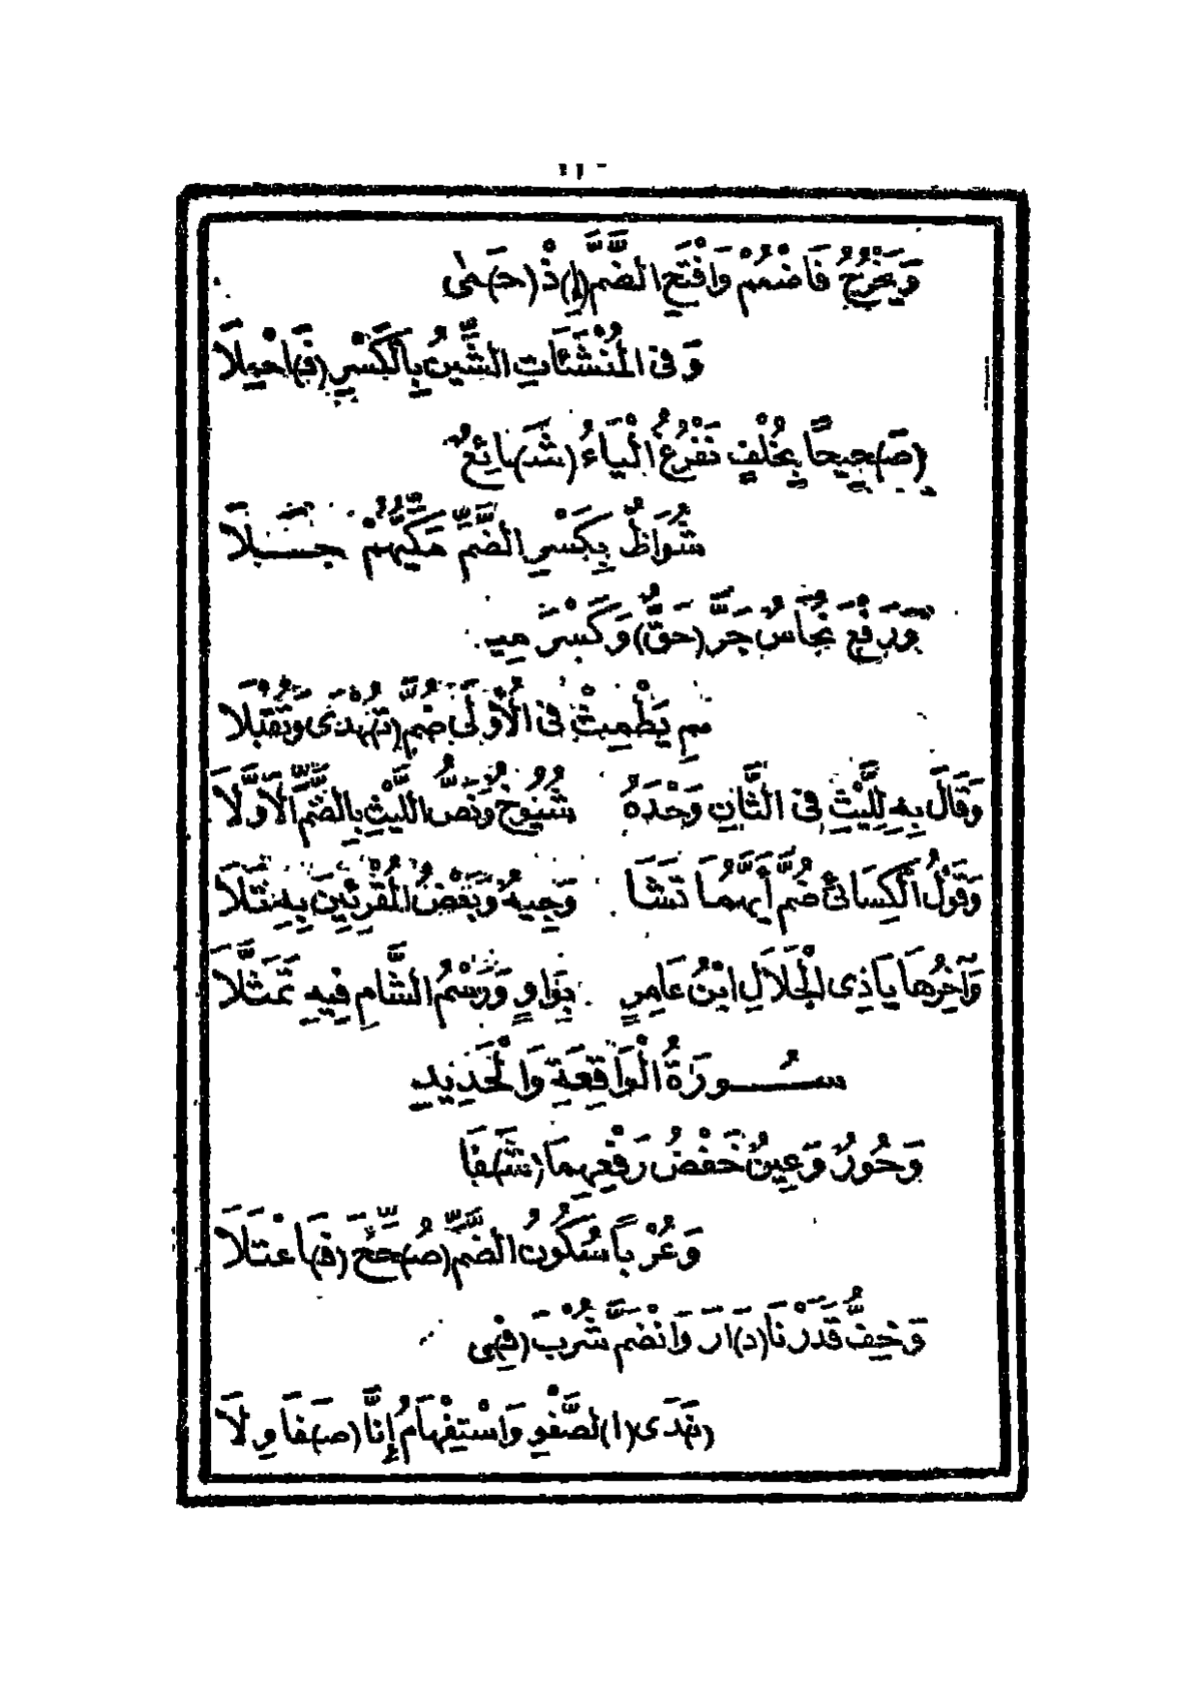 وَيَخْرُجُ فَاضْمُمْ وَافْتَحِ الضَّمَّ (إِ)ذْ (حَ)مٰى
وَفِى الْمُنْشَئَاتِ الشِّينُ بِالْكَسْرِ (فَ)احْمِلَا
(صَ)حِيحًا بِخُلْفٍ نَفْرُغُ الْيَاءُ (شَ)ائِعٌ
شُوَاظٌ بِكَسْرِ الضَّمِّ مَكِّيُّهُمْ جَـــلَا
وَرَفْعَ نُحَاسٌ جَرَّ (حَقٌّ) وَكَسْرَ مِيـ
ـمِ يَطْمِثْ فِى الْأُولَى ضُمَّ (تُ)هْدَى وَتُقْبَلَا
وَقَالَ بِهِ لِلَّيْثِ فِى الثَّانِ وَحْدَهُ شُيُوخٌ وَنَصُّ اللَّيْثِ بِالضَّمِّ الَاوَّلَا
وَقَوْلُ الْكِسَائِى ضُمَّ أَيَّهُمَا تَشَا وَجِيهٌ وَبَعْضُ الْمُقْرِئِينَ بِهِ تَلَا
وَآخِرُهَا يَاذِى الْجَلَالِ ابْنُ عَامِرٍ بِوَاوٍ وَرَسْمُ الشَّامِ فِيهِ تَمَثَّلَا
سُـــورَةُ الْوَاقِعَةِ وَالْحَدِيدِ
وَحُورٌ وَعِينٌ خَفْضُ رَفْعِهِمَا (شَ)فَا
وَعُرْبًا سُكُونُ الضَّمِّ (صُ)حِّحَ (فَ)اعْتَلَا
وَخِفُّ قَدَرْنَا (دَ)ارَ وَانْضَمَّ شُرْبَ (فِ)ى
(نَ)دَى (ا)لصَّفْوِ وَاسْتِفْهَامُ إِنَّا (صَ)فَا وِلَا